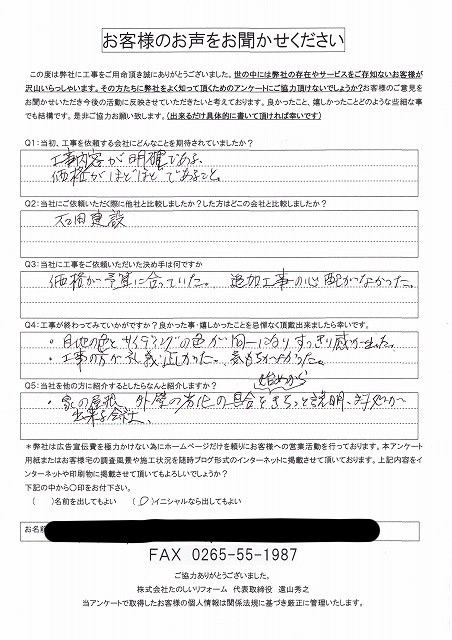 お客様のお声をお聞かせください
この度は弊社に工事をご用命頂き誠にありがとうございました。世の中には弊社の存在やサービスをご存知ないお客様が
沢山いらっしゃいます。その方たちに弊社をよく知って頂くためのアンケートにご協力頂けないでしょうか?お客様のご意見を
お聞かせいただき今後の活動に反映させていただきたいと考えております。良かったこと、嬉しかったことどのような些細な事
でも結構です。是非ご協力お願い致します。(出来るだけ具体的に書いて頂ければ幸いです)
Q1:当初、工事を依頼する会社にどんなことを期待されていましたか?
工事内容が明確である、
価格がほどほどであること。
Q2:当社にご依頼いただく際に他社と比較しましたか?した方はどこの会社と比較しましたか?
石田建設
Q3:当社に工事をご依頼いただいた決め手は何ですか
価格が予算に合っていた。 追加工事の心配がなかった。
Q4:工事が終わってみていかがですか?良かった事・嬉しかったことを忌憚なく頂戴出来ましたら幸いです。
・目地の色とサイディングの色が同一になりすっきり感が出た。
・工事の方が礼義正しかった。気もちがよかった。
Q5:当社を他の方に紹介するとしたらなんと紹介しますか?
始めから
・家の屋根、外壁の劣化の具合をきちっと説明、対処が
出来る会社。
*弊社は広告宣伝費を極力かけない為にホームページだけを頼りにお客様への営業活動を行っております。本アンケート
用紙またはお客様宅の調査風景や施工状況を随時ブログ形式のインターネットに掲載させて頂いております。上記内容をイ
ンターネットや印刷物に掲載させて頂いてもよろしいでしょうか?
下記の中から〇印をお付下さい。
( )名前を出してもよい (〇)イニシャルなら出してもよい
お名前
FAX 0265-55-1987
ご協力ありがとうございました。
株式会社たのしいリフォーム 代表取締役 遠山秀之
当アンケートで取得したお客様の個人情報は関係法規に基づき厳正に管理いたします。